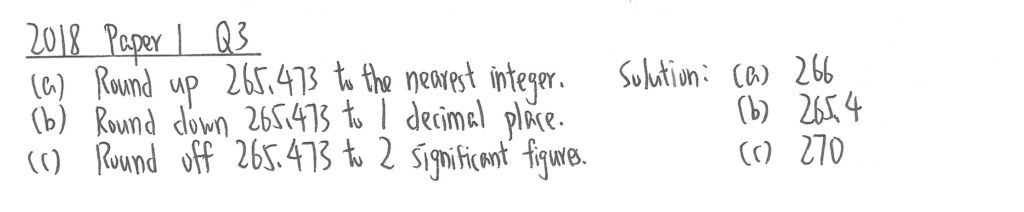 2018 Paper 1 Q3
(a) Round up 265.473 to the nearest integer. Solution: (a) 266
(b) Round down 265.473 to 1 decimal place. (b) 265.4
(c) Round off 265.473 to 2 significant figures. (c) 270